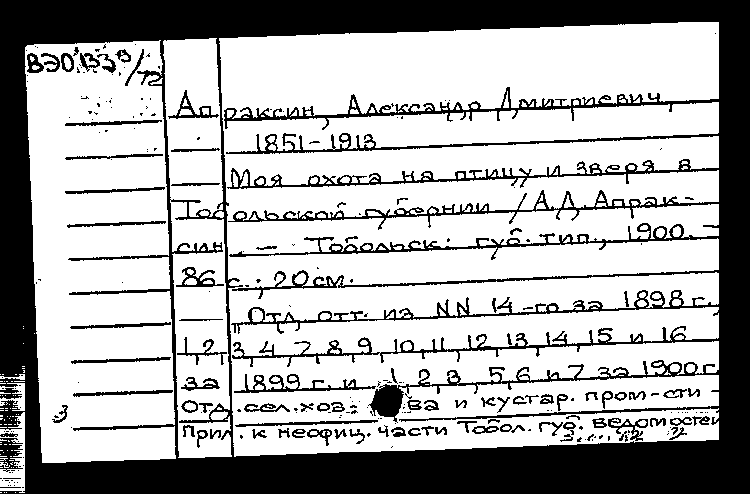 ВЭО 133в/72
Апраксин, Александр Дмитриевич,
1851-1913
Моя охота на птицу и зверя в
Тобольской губернии / А.Д. Апрак-
син. — Тобольск: губ. тип., 1900. —
86 с.; 20 см.
Отд. отт. из NN 14-го за 1898 г.,
1,2,3,4,7,8,9,10,11,12,13,14,15 и 16
за 1899 г. и 1,2,3,5,6 и 7 за 1900 г.
Отд. сел. хоз: ва и кустар. пром-сти -
Прил. к неофиц. части Тобол. губ. ведомостей
З